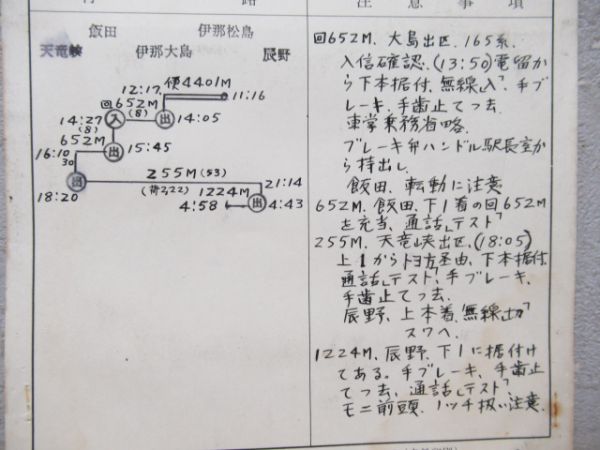 行 路
注 意 事 項
飯田 伊那松島
天竜峡 伊那大島 辰野
12:17 便4401M 11:16
回652M
(8)
14:27 入 出 14:05
(8)
652M
16:10 出 15:45
30
255M (53) 21:14
回 (荷2,22) 1224M
18:20 4:58 出 4:43
回652M、大島出区、165系、
入信確認、(13:50)電留か
ら下本据付、無線「入」、手ブ
レーキ、手歯止てっ去、
車掌乗務省略、
ブレーキ弁ハンドル駅長室か
ら持出し
飯田、転動に注意
652M、飯田、下1着の回652M
を充当、通話「テスト」
255M、天竜峡出区、(18:05)
上1からトヨ方 経由、下本据付
通話「テスト」、手ブレーキ、
手歯止てっ去、
辰野、上本着、無線「切」
スワへ、
1224M、辰野、下1に据付け
てある。手ブレーキ、手歯止
てっ去、通話「テスト」
モニ前頭、1ッチ扱い注意、